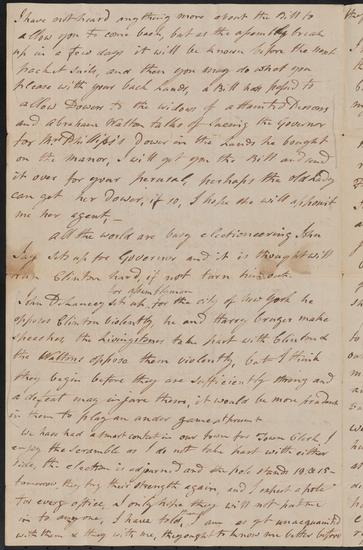 I have not heard anything more about the Bill to
allow you to come back, but as the assembly break
up in a few days it will be known before the next
packet sails, and then you may do what you
please with your back Lands, a Bill was passed to
allow Dowers to the widows of attainted Persons
and Abraham Walton talks of suing the Governor
for Mrs Philips's Dower in the Lands he bought
on the manor, I will get you the Bill and send
it over for your perusal, perhaps the old Lady
can get her dower, if so, I hope she will appoint
me her agent,—
all the world are busy electioneering John
Jay sets up for Governor and it is thought will
run Clinton hard, if not turn him out.
for assemblyman
John Delancey sets up for the city of New York he
opposes Clinton violently, he and Harry Cruger make
speeches, the Livingstones take part with Clinton &
the Waltons oppose them violently, but I think
they begin before they are sufficiently strong and
a defeat may injure them, it would be more prudent
in them to play an under game at present
We have had a smart contest in our town for Town Clerk, I
enjoy the scramble as I do not take part with either
side, the election is adjourned and the pole stands 19 & 15—
tomorrow they try their strength again, and I expect a pole
for every office, I only hope they will not put me
in to any one, I have told I am as yet unacquainted
with them & they with me, they ought to know me better before